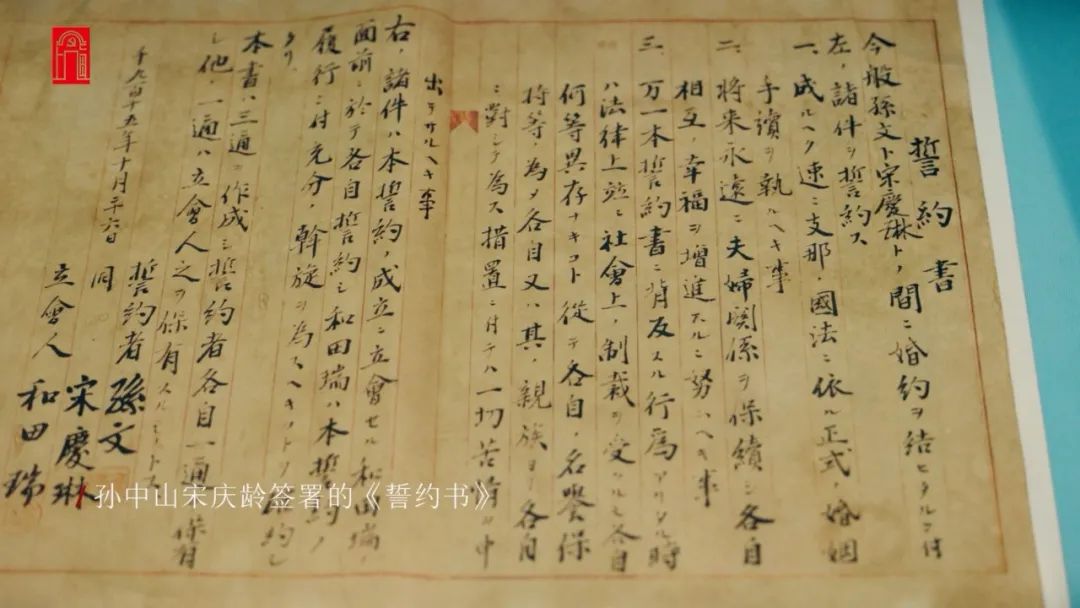 誓約書
今般孫文ト宋慶琳トノ間ニ婚約ヲ結ヒタルニ付
左ノ諸件ヲ誓約ス
一、成ルヘク速ニ支那ノ國法ニ依ル正式ノ婚姻
手續ヲ執ルヘキ事
二、将来永遠ニ夫婦関係ヲ保續シ各自
相互ノ幸福ヲ增進スルニ努ムヘキ事
三、万一本誓約書ニ背反スル行為アリタル時
ハ法律上並ニ社會上ノ制裁ヲ受クルモ各自
何等異存ナキコト従テ各自ノ名譽保
持等ノ為メ各自又ハ其ノ親族ヨリ各自
ニ對シテ為ス措置ニ付テハ一切苦情ヲ申
出テサルヘキ事
右ノ諸件ハ本誓約ノ成立ニ立會セル和田瑞ノ
面前ニ於テ各自誓約シ和田瑞ハ本誓約ノ
履行ニ付充分ノ幹旋ヲ為スヘキコトヲ約シ
タリ
本書ハ三通ヲ作成シ誓約者各自一通ヲ保有
シ他ノ一通ハ立會人之ヲ保有スルモノトス
千九百十五年十月二十六日
誓約者 孫文
同 宋慶琳
立會人 和田瑞
孙中山宋庆龄签署的《誓约书》